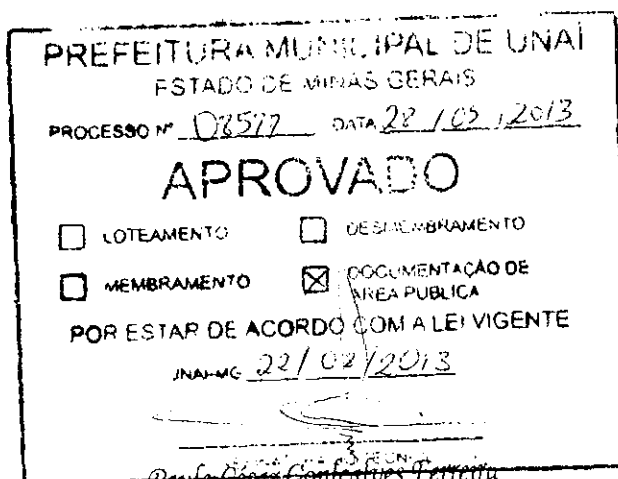 PREFEITURA MUNICIPAL DE UNAÍ
ESTADO DE MINAS GERAIS
PROCESSO Nº 08577 DATA 28 / 05 / 2013
APROVADO
LOTEAMENTO DESMEMBRAMENTO
MEMBRAMENTO DOCUMENTAÇÃO DE
ÁREA PUBLICA
POR ESTAR DE ACORDO COM A LEI VIGENTE
UNAÍ-MG 22 / 08 / 2013
Gonçalves Ferreira